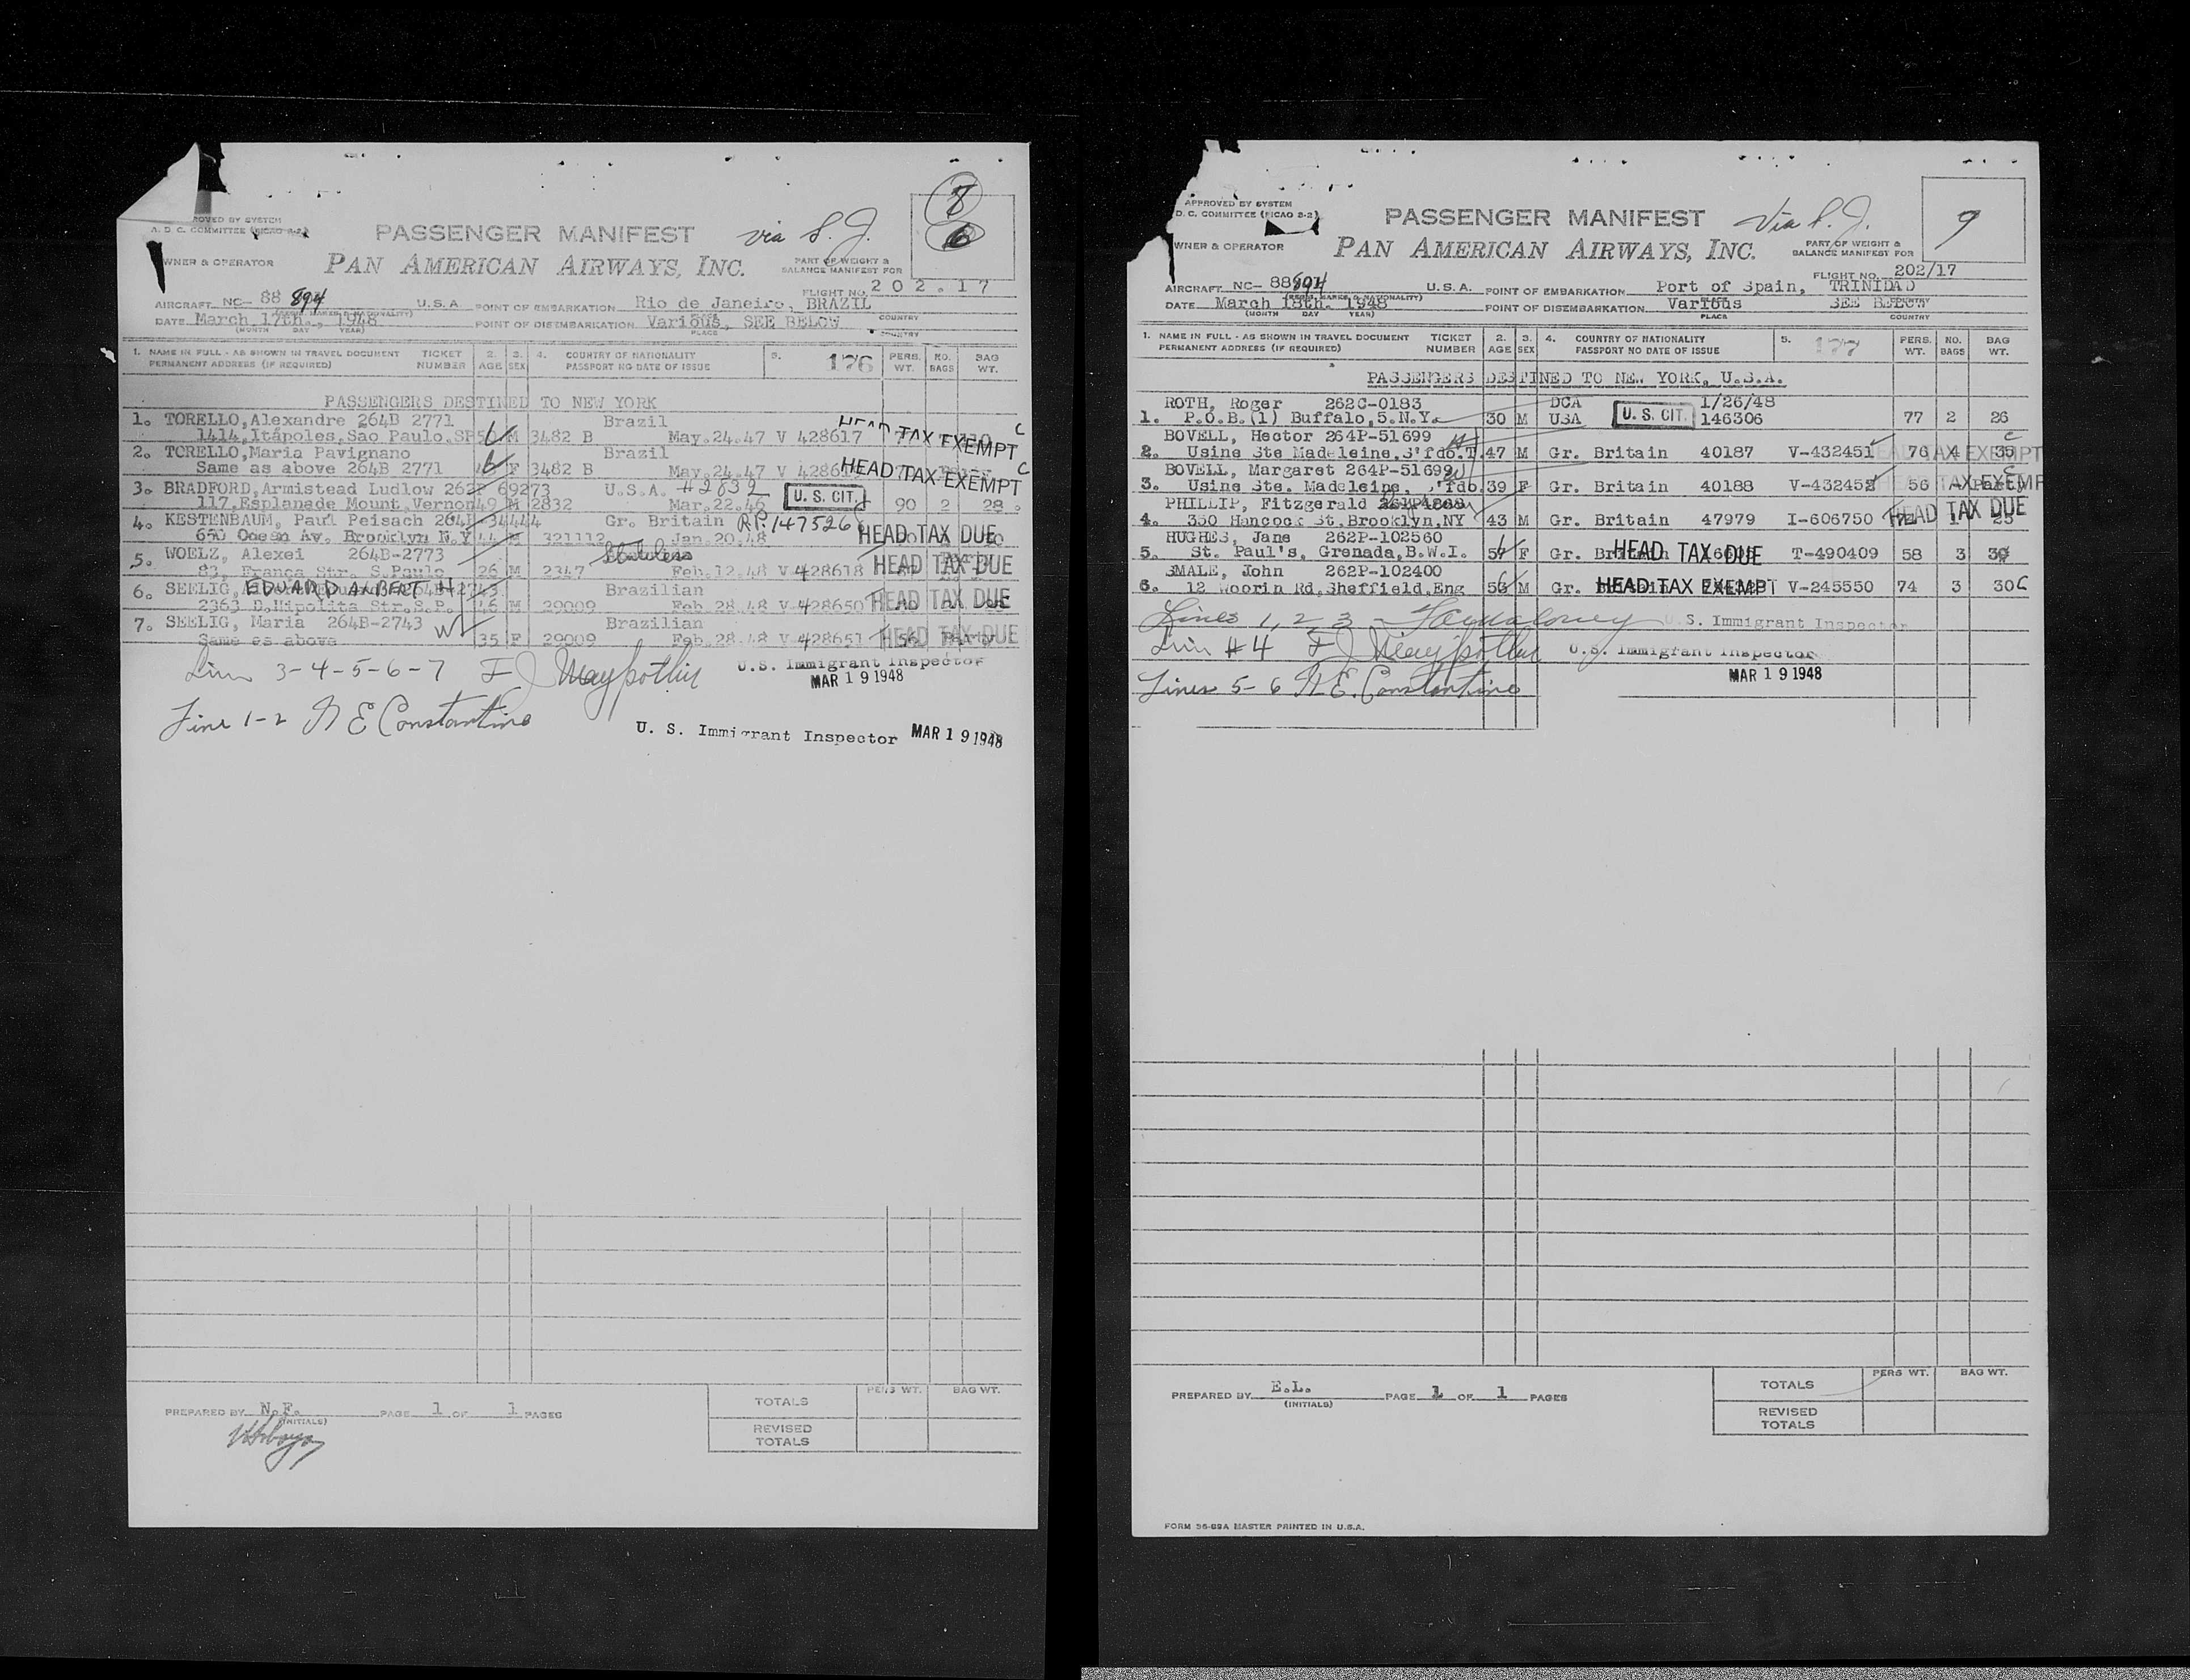 8
6
ROVED BY SYSTEM
A. D. C. COMMITTEE
PASSENGER MANIFEST
via S. J.
WNER & OPERATOR
PAN AMERICAN AIRWAYS, INC.
PART OF WEIGHT &
BALANCE MANIFEST FOR
FLIGHT NO. 202.17
AIRCRAFT NC- 88 894 U.S.A. POINT OF EMBARKATION Rio de Janeiro, BRAZIL
DATE March 17th., 1948 POINT OF DISEMBARKATION Various, SEE BELOW
(MONTH DAY YEAR) PLACE COUNTRY
1. NAME IN FULL - AS SHOWN IN TRAVEL DOCUMENT TICKET 2. 3. 4. COUNTRY OF NATIONALITY 5. 176 PERS. NO. BAG
PERMANENT ADDRESS (IF REQUIRED) NUMBER AGE SEX PASSPORT NO DATE OF ISSUE WT. BAGS WT.
PASSENGERS DESTINED TO NEW YORK
1. TORELLO, Alexandre 264B 2771 Brazil
1414, Itápoles, Sao Paulo, SP M 3482 B May.24.47 V 428617 TAX EXEMPT C
2. TORELLO, Maria Pavignano Brazil
Same as above 264B 2771 F 3482 B May.24.47 HEAD TAX EXEMPT C
3. BRADFORD, Armistead Ludlow 262P 69273 U.S.A. #2832 U. S. CIT.
117, Esplanade Mount Vernon 49 M 2832 Mar.22.46 90 2 28
4. KESTENBAUM, Paul Peisach 264B 34444 Gr. Britain R.P. 147526
650 Ocean Av. Brooklyn N.Y 44 M 321112 Jan.20.48 HEAD TAX DUE
5. WOELZ, Alexei 264B-2773 Stateless
83, Franca Str. S.Paulo 26 M 2347 Feb.12.48 V 428618 HEAD TAX DUE
6. SEELIG, EDUARD ALBERT H Brazilian
2363 D.Hipolita Str.S.P. 46 M 29009 Feb.28.48 V 428650 HEAD TAX DUE
7. SEELIG, Maria 264B-2743 Brazilian
Same as above 35 F 29009 Feb.28.48 V 428651 56 HEAD TAX DUE
3-4-5-6-7
U.S. Immigrant Inspector
MAR 19 1948
Line 1-2 N E Constantine
U. S. Immigrant Inspector MAR 19 1948
PERS WT. BAG WT.
TOTALS
REVISED
TOTALS
PREPARED BY N.F. PAGE 1 OF 1 PAGES
(INITIALS)
9
APPROVED BY SYSTEM
D. C. COMMITTEE (FICAO S-2)
PASSENGER MANIFEST
Via S. J.
WNER & OPERATOR
PAN AMERICAN AIRWAYS, INC.
PART OF WEIGHT &
BALANCE MANIFEST FOR
FLIGHT NO. 202/17
AIRCRAFT NC- 88894 U.S.A. POINT OF EMBARKATION Port of Spain, TRINIDAD
DATE March 18th 1948 POINT OF DISEMBARKATION Various SEE BELOW
(MONTH DAY YEAR) PLACE COUNTRY
1. NAME IN FULL - AS SHOWN IN TRAVEL DOCUMENT TICKET 2. 3. 4. COUNTRY OF NATIONALITY 5. 177 PERS. NO. BAG
PERMANENT ADDRESS (IF REQUIRED) NUMBER AGE SEX PASSPORT NO DATE OF ISSUE WT. BAGS WT.
PASSENGERS DESTINED TO NEW YORK, U.S.A.
ROTH, Roger 262C-0183 DCA 1/26/48
1. P.O.B.(1) Buffalo,5.N.Y. 30 M USA U. S. CIT. 146306 77 2 26
BOVELL, Hector 264P-51699
2. Usine Ste Madeleine,S'fdo.T. 47 M Gr. Britain 40187 V-432451 76 4 35 C TAX EXEMPT
BOVELL, Margaret 264P-51699
3. Usine Ste. Madeleine, 'fdo. 39 F Gr. Britain 40188 V-432452 56 TAX EXEMP
PHILLIP, Fitzgerald
4. 350 Hancock St,Brooklyn,NY 43 M Gr. Britain 47979 I-606750 HEAD TAX DUE
HUGHES, Jane 262P-102560
5. St. Paul's, Grenada,B.W.I. F Gr. HEAD TAX DUE T-490409 58 3
SMALE, John 262P-102400
6. 12 Woorin Rd,Sheffield,Eng 56 M Gr. HEAD TAX EXEMPT V-245550 74 3 30 C
Lines 1, 2, 3 U. S. Immigrant Inspector
#4 U.S. Immigrant Inspector
MAR 19 1948
Lines 5-6 N E. Constantine
PERS WT. BAG WT.
TOTALS
REVISED
TOTALS
PREPARED BY E.L. PAGE 1 OF 1 PAGES
(INITIALS)
FORM 96-89A MASTER PRINTED IN U.S.A.